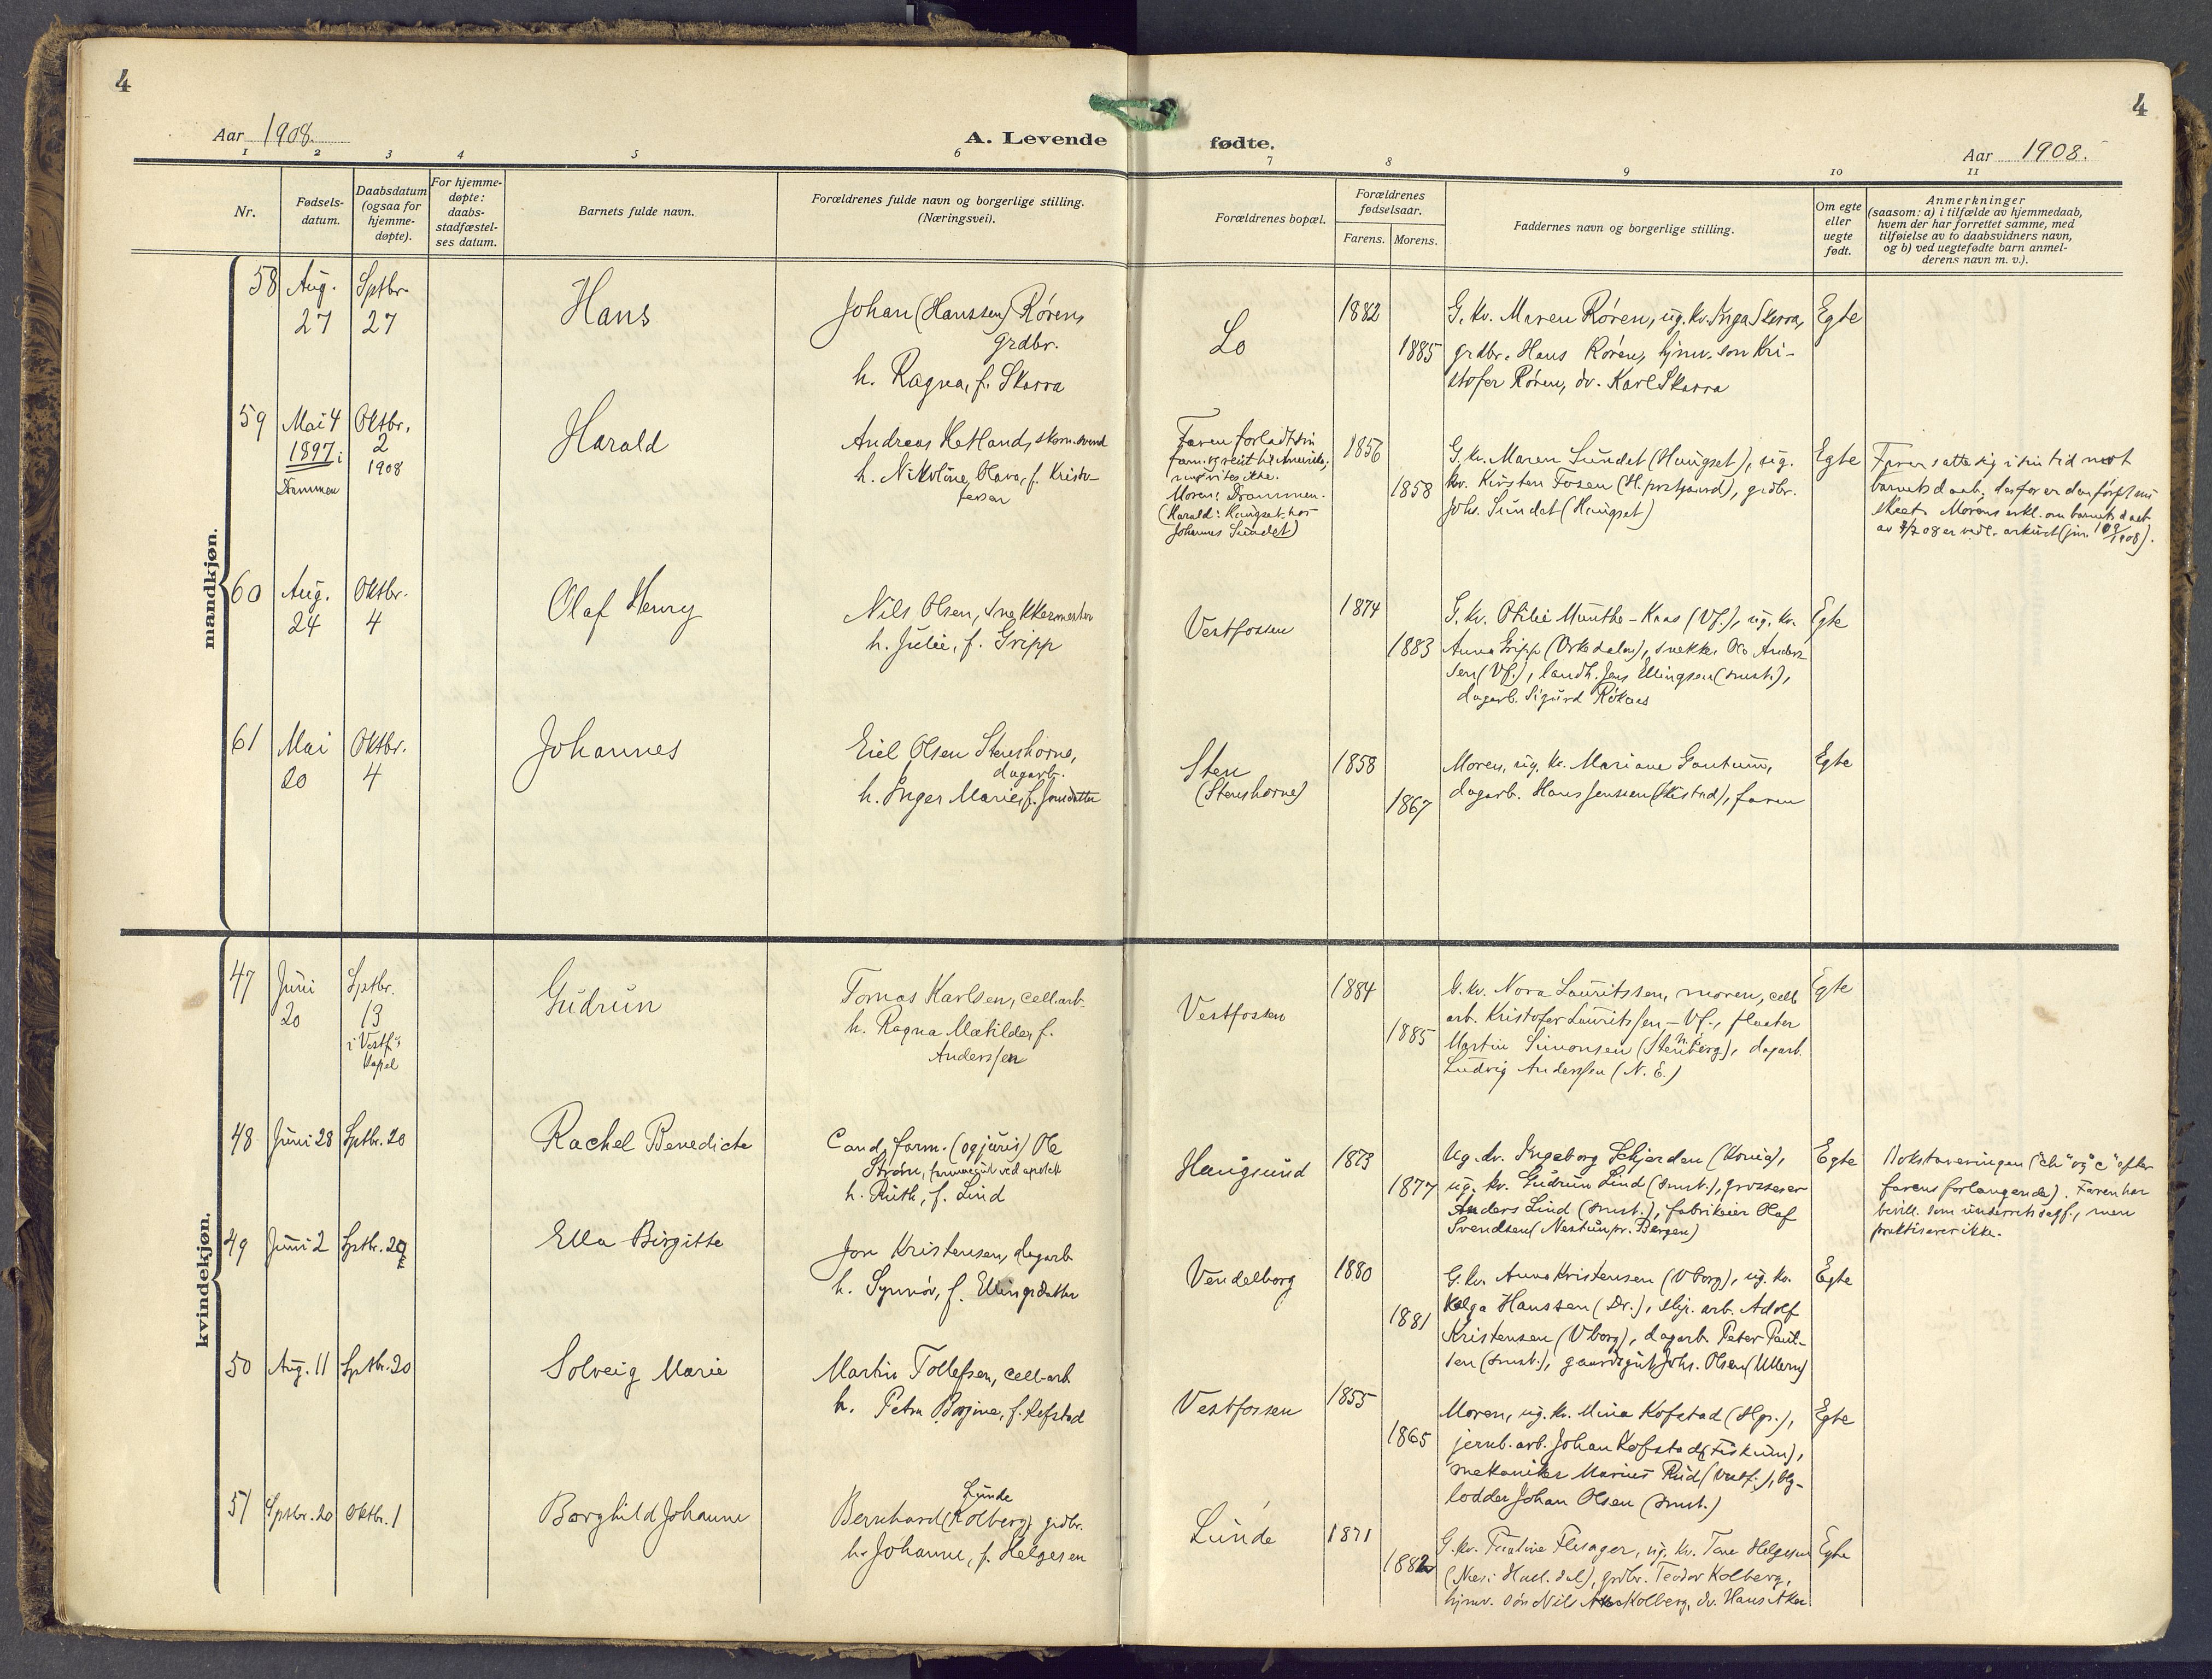 4
4
Aar 1908.
A. Levende fødte.
Aar 1908.
1 2 3 4 5 6 7 8 9 10 11
Nr.
Fødsels-
datum.
Daabsdatum
(ogsaa for
hjemme-
døpte).
For hjemme-
døpte:
daabs-
stadfæstel-
ses datum.
Barnets fulde navn.
Forældrenes fulde navn og borgerlige stilling.
(Næringsvei).
Forældrenes bopæl.
Forældrenes
fødselsaar.
Farens. Morens.
Faddernes navn og borgerlige stilling.
Om egte
eller
uegte
født.
Anmerkninger
(saasom: a) i tilfælde av hjemmedaab,
hvem der har forrettet samme, med
tilføielse av to daabsvidners navn,
og b) ved uegtefødte barn anmel-
derens navn m. v.).
mandkjøn.
58
Aug.
27
Sptbr.
27
Hans
Johan (Hanssen) Røren,
grdbr.
h. Ragna, f. Skarra
Lo
1882
1885
G. kv. Maren Røren, ug. kv. Inga Skarra,
grdbr. Hans Røren, hjmv. søn Kri-
stofer Røren, dv. Karl Skarra
Egte
59
Mai 4
1897 i
Drammen
Oktbr.
2
1908
Harald
Andreas Hetland, skom.svend
h. Nikoline Olava, f. Kristo-
fersen
Faren forladt sin
fam. og reist til Amerika,
Moren: Drammen.
(Harald: Haugset hos
Johannes Sundet)
1856
1858
G. kv. Maren Sundet (Haugset), ug.
kv. Kirsten Fosen (H. prstgaard), grdbr.
Johs. Sundet (Haugset)
Egte
Faren satte sig i sin tid mot
barnets daab, derfor er den først nu
skeet. Morens erkl. om barnets daab
60
Aug.
24
Oktbr.
4
Olaf Henry
Nils Olsen, snekkermester
h. Julie, f. Gripp
Vestfossen
1874
1883
G. kv. Otilie Munthe-Kaas (Vf.), ug. kv.
Anna Gripp (Orkedalen), snekker Ole Anders-
sen (Vf.), landh. Jens Ellingsen (smst.),
dagarb. Sigurd Røkaas
Egte
61
Mai
20
Oktbr.
4
Johannes
Eiel Olsen Stenshorne,
dagarb.
h. Inger Marie, f. Jonsdatter
Sten
(Stenshorne)
1858
1867
Moren, ug. kv. Mariane Gontum,
dagarb. Hans Jensen (Kistad), faren
Egte
kvindekjøn.
47
Juni
20
Sptbr.
13
i Vestf's
kapel
Gudrun
Tomas Karlsen, cell.arb.
h. Ragna Matilde, f.
Anderssen
Vestfossen
1884
1885
G. kv. Nora Lauritssen, moren, cell.
arb. Kristofer Lauritssen - Vf., fløter
Martin Simonsen (Stenberg), dagarb.
Ludvig Anderssen (N. E.)
Egte
48
Juni 28
Sptbr. 20
Rachel Benedicte
Cand. farm. (og juris) Ole
Strøm, farmaceut ved apotek
h. Ruth, f. Lind
Haugsund
1873
1877
Ug. kv. Ingeborg Schjerden (Horne),
ug. kv. Gudrun Lind (smst.), grosserer
Anders Lind (smst.), fabrikeier Olaf
Svendsen (Nestun pr. Bergen)
Egte
Bokstaveringen ("ch" og "c" efter
farens forlangende). Faren har
bevill. som underretssagf., men
praktiserer ikke.
49
Juni 2
Sptbr. 20
Ella Birgitte
Jon Kristensen, dagarb.
h. Synnøv, f. Ellingsdatter
Vendelborg
1880
1881
G. kv. Anna Kristensen (Vborg), ug. kv.
Helga Hanssen (Dr.), slip. arb. Adolf
Kristensen (Vborg), dagarb. Peter Paul-
sen (smst.), gaardsgut Johs. Olsen (Ullern)
Egte
50
Aug. 11
Sptbr. 20
Solveig Marie
Martin Tollefsen, cell.arb.
h. Petra Bergine, f. Kofstad
Vestfossen
1855
1865
Moren, ug. kv. Mina Kofstad (Hgs.),
jernb. arb. Johan Kofstad (Fiskum),
mekaniker Marius Rud (Vestf.), bly-
lodder Johan Olsen (smst.)
Egte
51
Sptbr. 20
Oktbr. 1
Borghild Johanne
Lunde
Bernhard (Kolberg) grdbr.
h. Johanne, f. Helgesen
Lunde
1871
1882
G. kv. Flesager, ug. kv. Tone Helgesen
(Nes i Hall.dal), grdbr. Teodor Kolberg,
hjmv. søn Nils Kolberg, dv. Hans Aker.
Egte